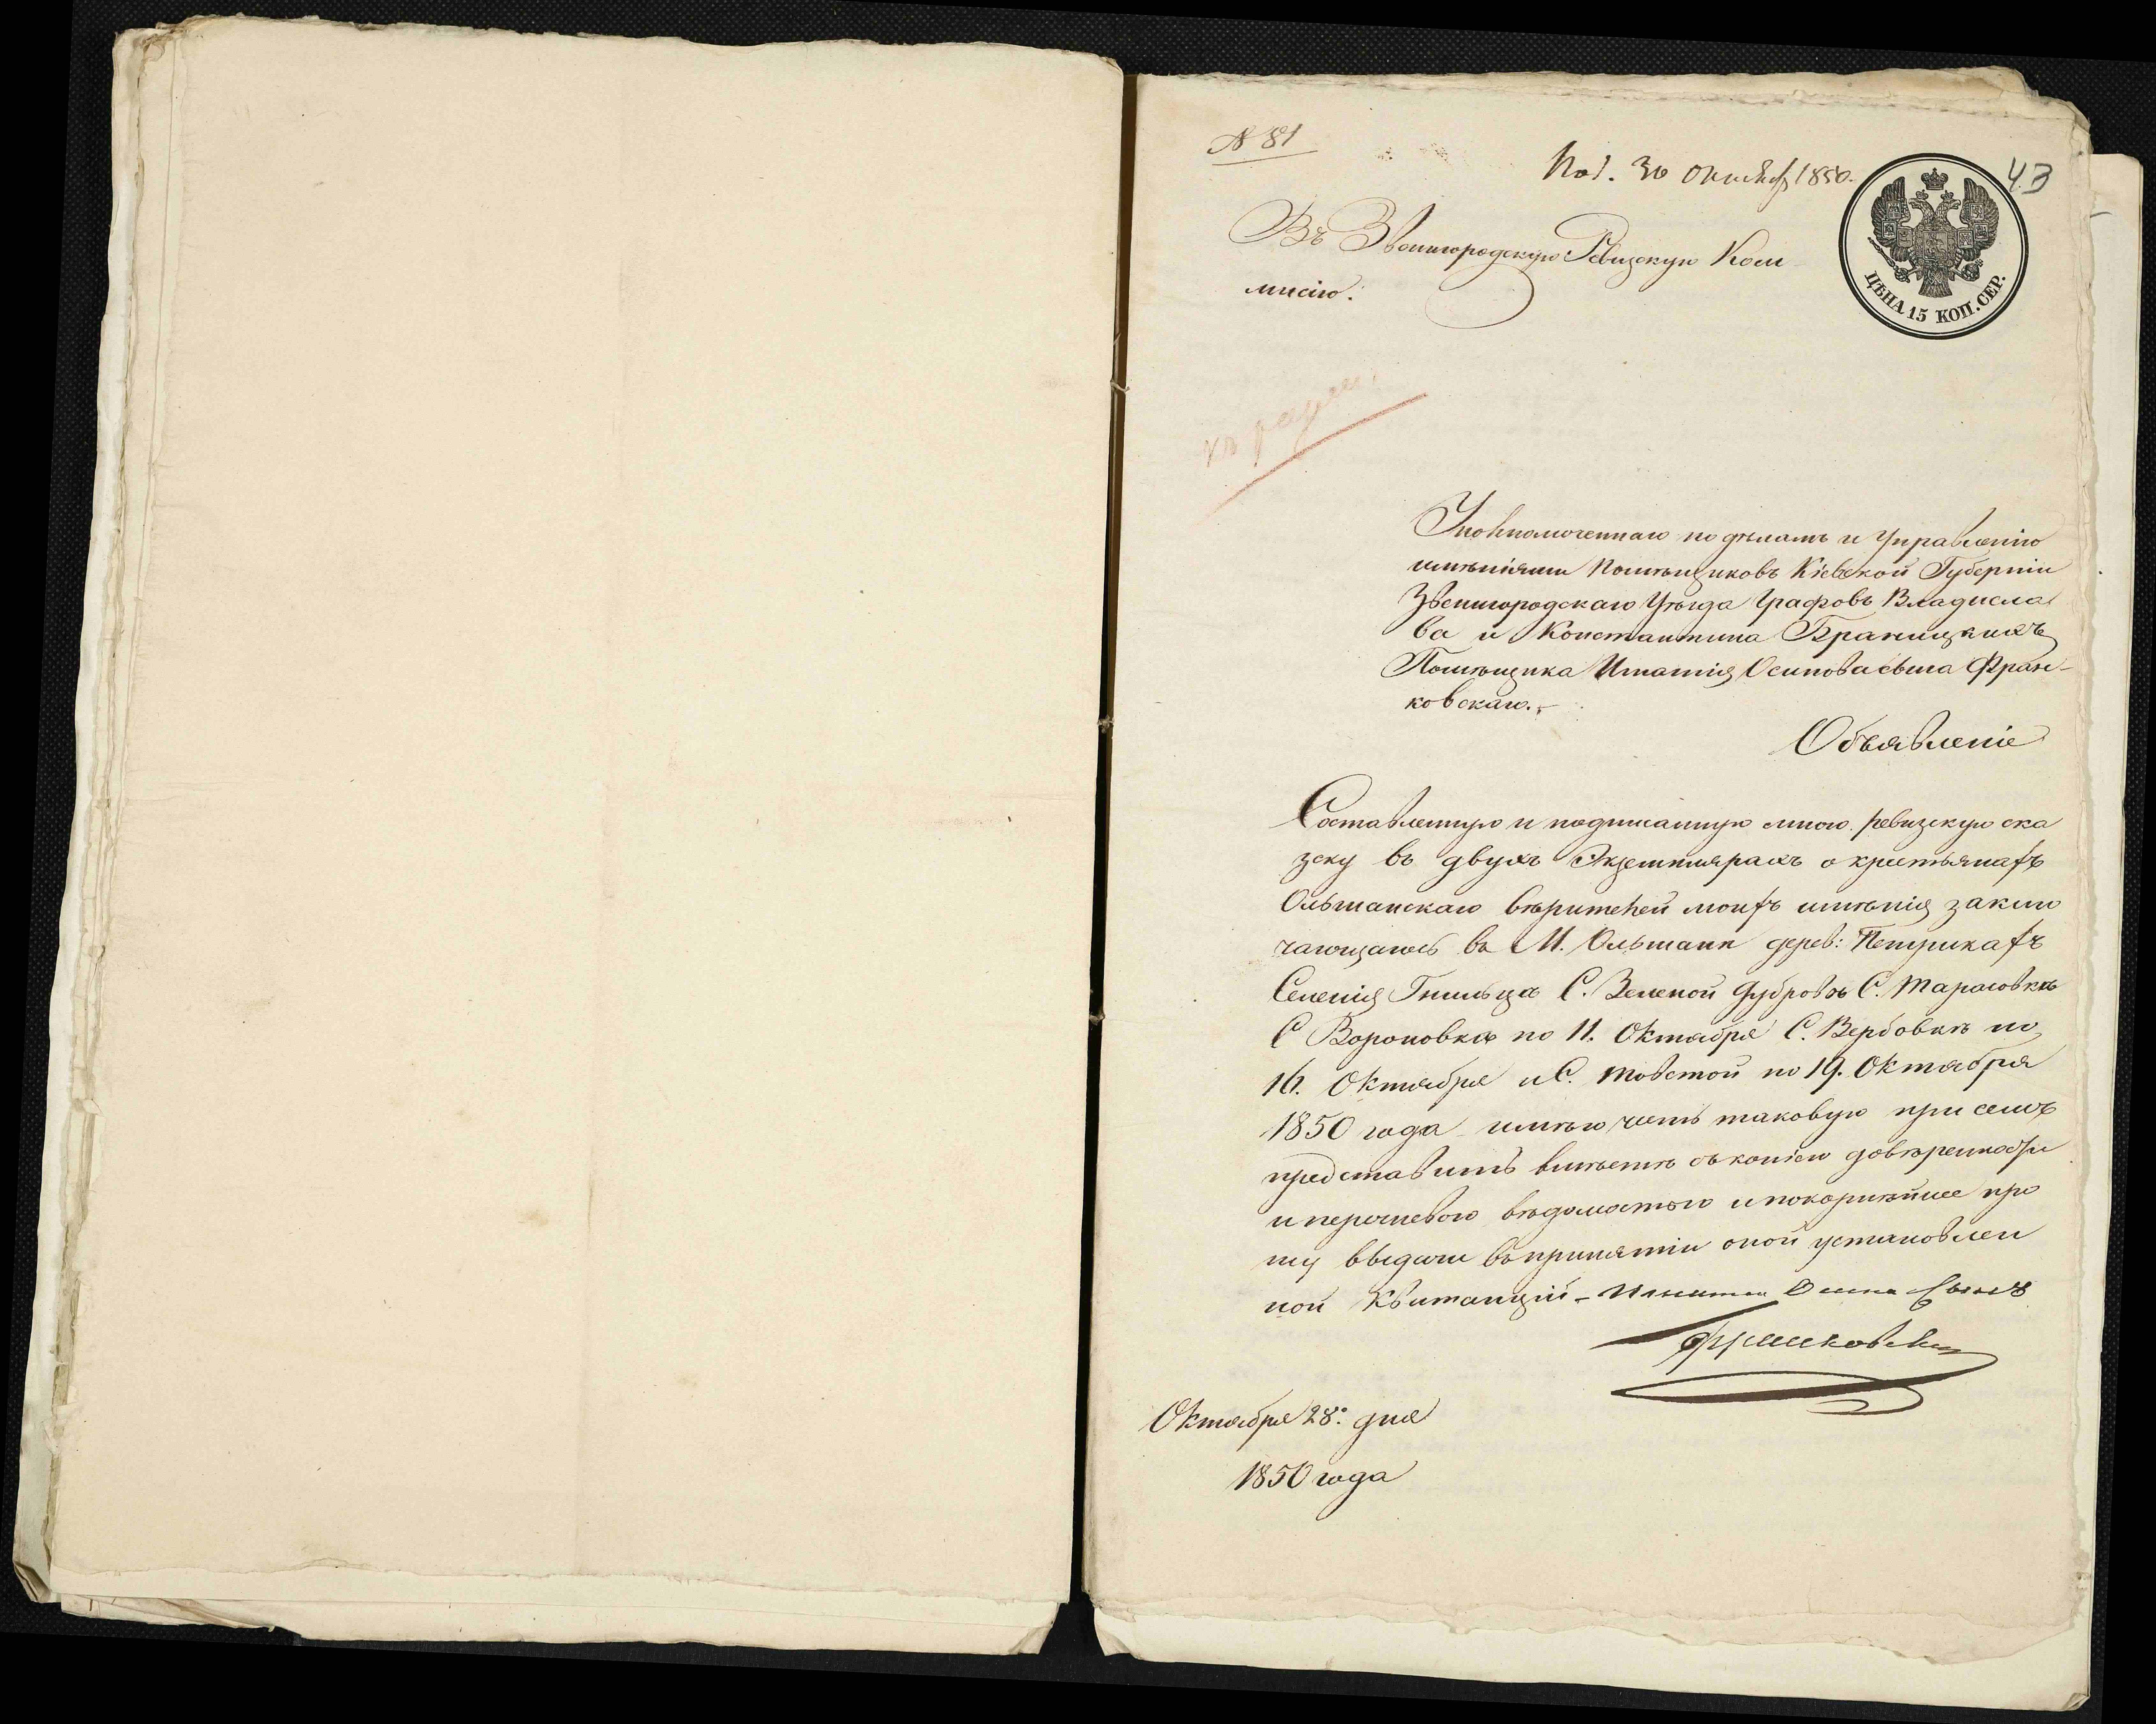 № 81
Пол. 30 Октября 1850.
43
Въ Звенигородскую Ревизскую Ком
мисію.
ЦѢНА 15 КОП. СЕР.
Уполномоченнаго по дѣламъ и Управленію
имѣніями Помѣщиковъ Кіевской Губерніи
Звенигородскаго Уѣзда Графовъ Владисла
ва и Константина Браницкихъ
Помѣщика Игнатія Осипова сына Фран-
ковскаго.
Объявленіе
Составленную и подписанную мною ревизскую ска
зску въ двухъ Экземплярахъ о крестьянахъ
Ольшанскаго вѣрителей моихъ имѣнія заклю
чающагось въ М. Ольшанѣ дерев: Петрикахъ
Селенія Гнильца С. Зеленой Дубровѣ С. Тарасовкѣ
С Вороновкѣ по 11. Октября С. Вербовкѣ по
16. Октября и С. Товстой по 19. Октября
1850 года имѣю честь таковую при семъ
представить вмѣстѣ съ копіею довѣренности
и перечневою вѣдомостью и покорнѣйше про
шу выдачи въ принятіи оной установлен
ной Квитанціи - Игнатій Осипа Сынъ
Франковскій
Октября 28. дня
1850 года